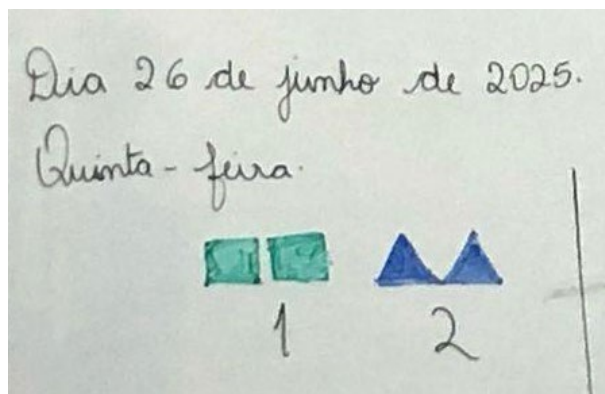 Dia 26 de junho de 2025.
Quinta-feira.
1 2